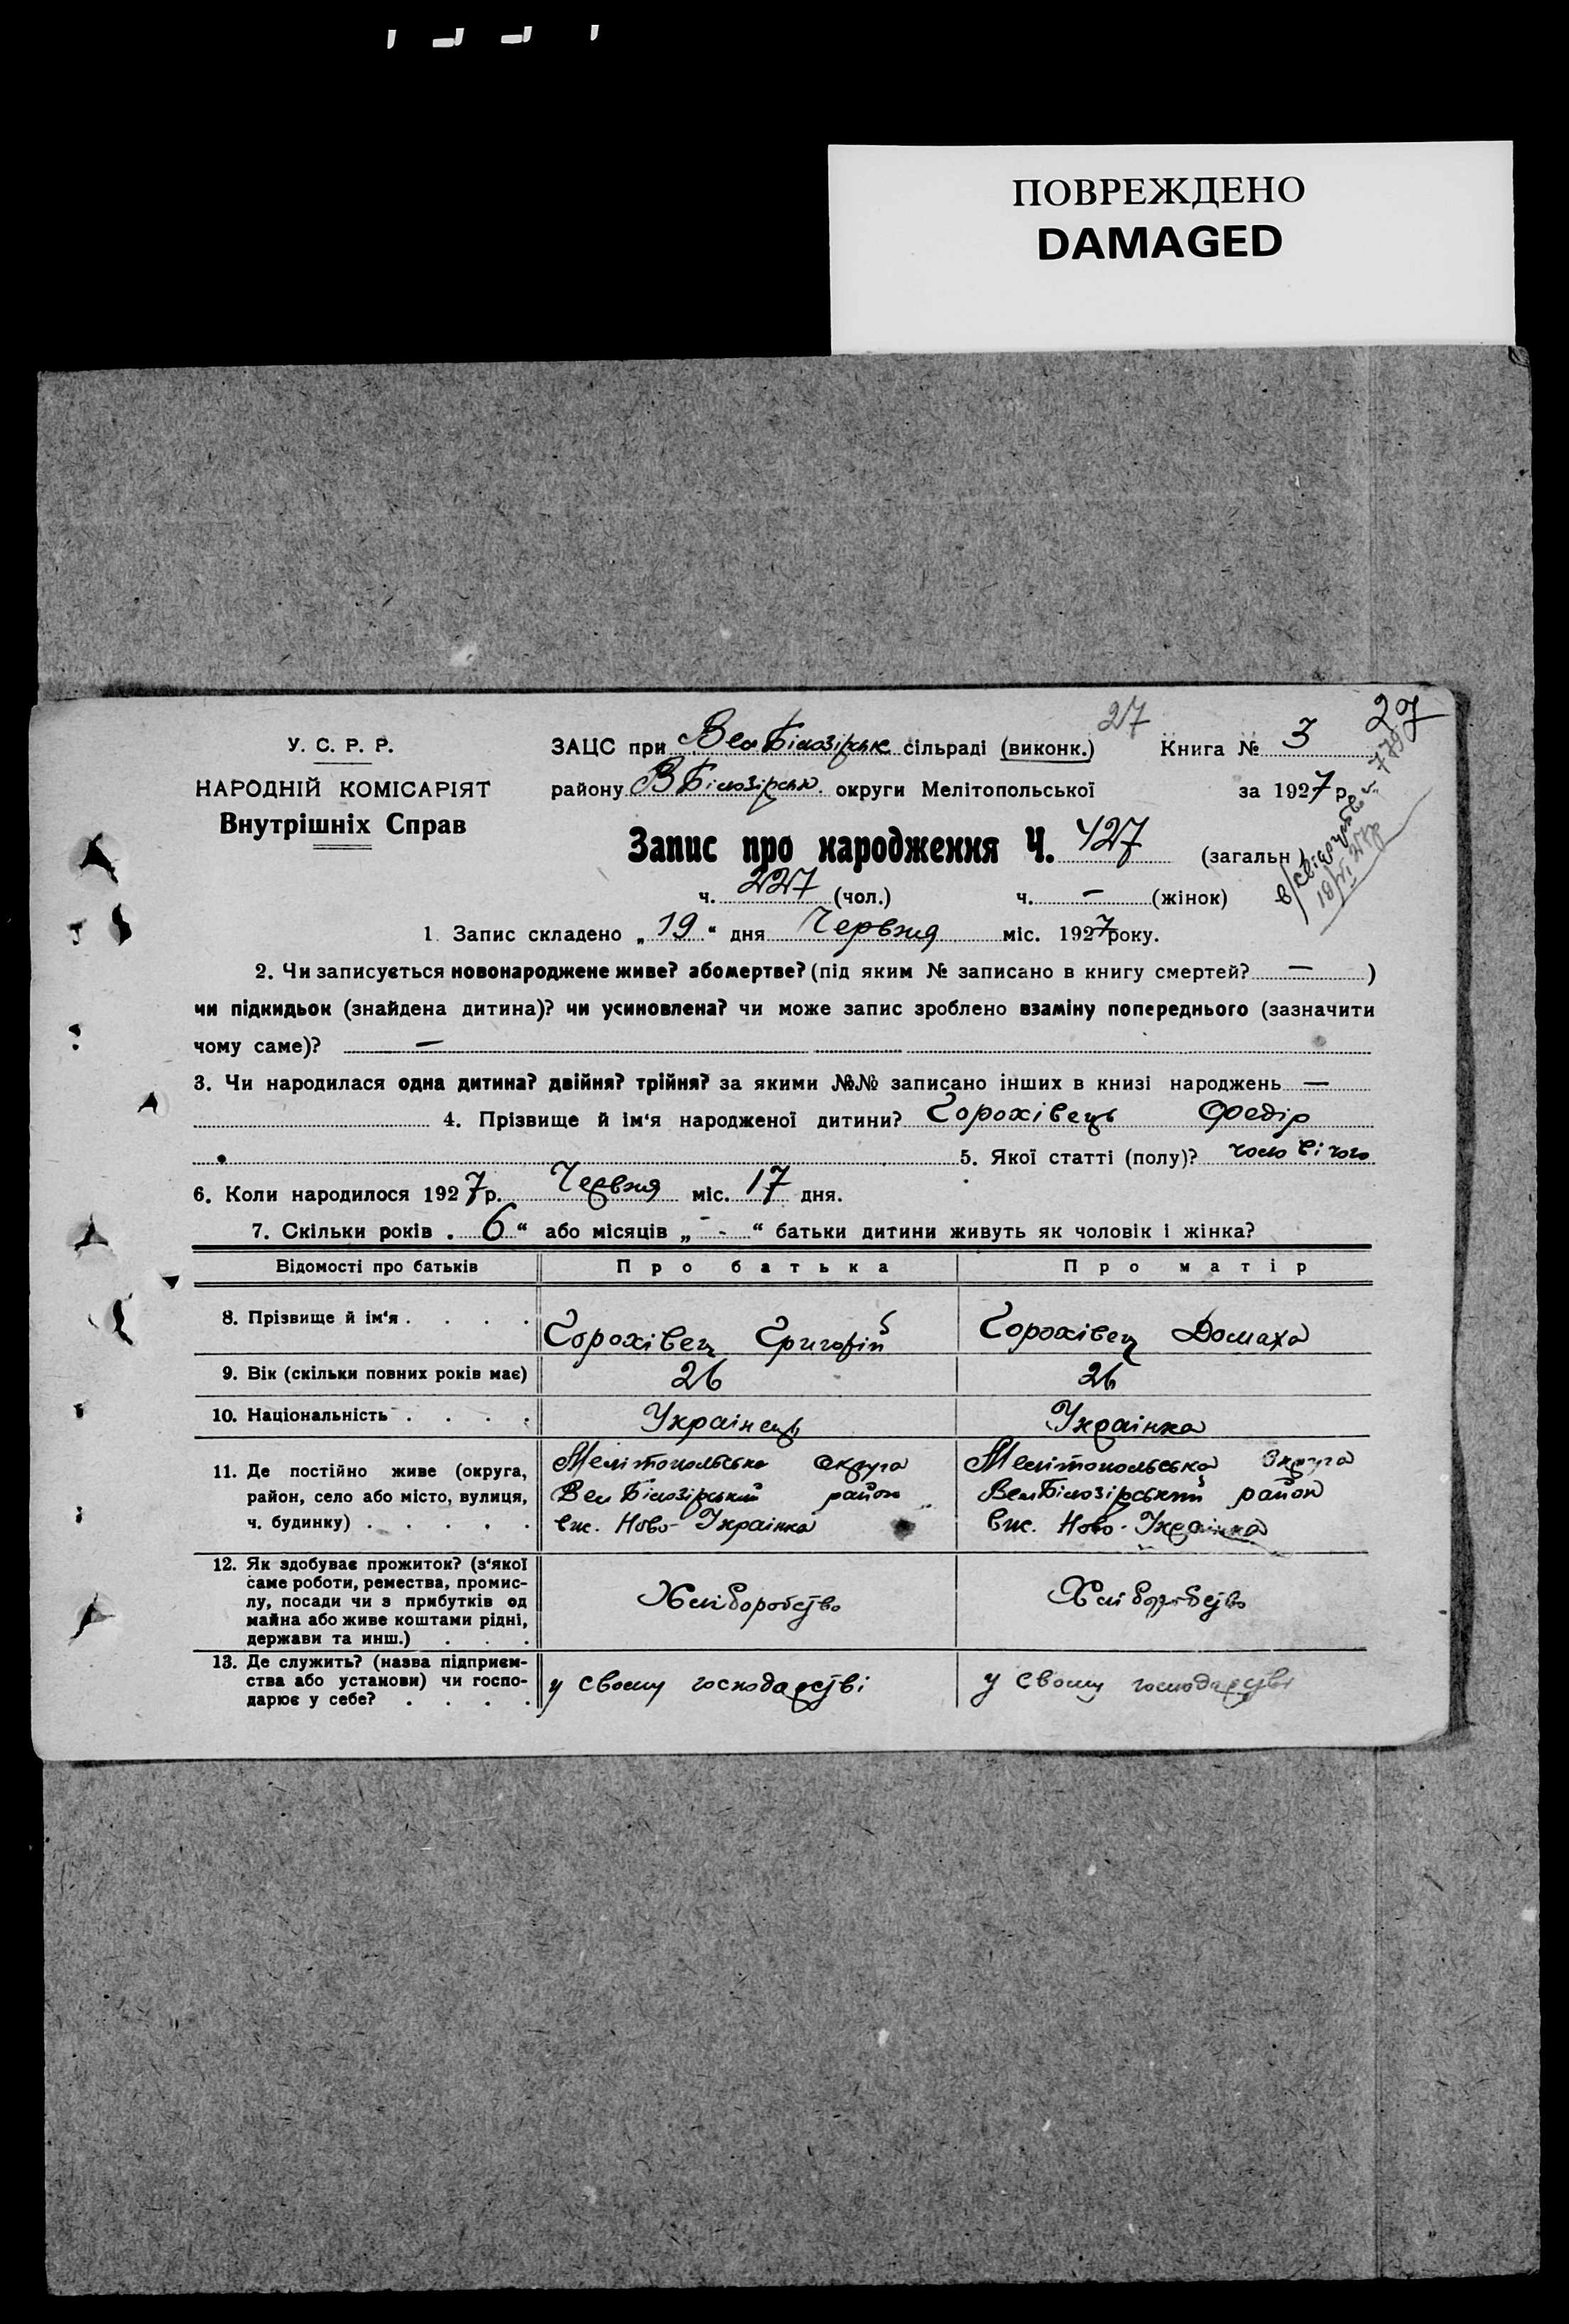 ПОВРЕЖДЕНО
DAMAGED
27
27
У. С. Р. Р.
НАРОДНІЙ КОМІСАРІЯТ
Внутрішніх Справ
ЗАЦС при Вел Білозірськ сільраді (виконк.) Книга № 3
району В Білозірськ. округи Мелітопольської за 1927 р.
Запис про народження Ч. 427 (загальн.)
ч. 227 (чол.) ч. — (жінок)
1. Запис складено „19“ дня Червня міс. 1927 року.
2. Чи записується новонароджене живе? або мертве? (під яким № записано в книгу смертей? — )
чи підкидьок (знайдена дитина)? чи усиновлена? чи може запис зроблено взаміну попереднього (зазначити
чому саме)? —
3. Чи народилася одна дитина? двійня? трійня? за якими №№ записано інших в книзі народжень —
4. Прізвище й ім‘я народженої дитини? Горохівець Федір
5. Якої статті (полу)? чоловічого
6. Коли народилося 1927 р. Червня міс. 17 дня.
7. Скільки років „6“ або місяців „-“ батьки дитини живуть як чоловік і жінка?
Відомості про батьків Про батька Про матір
8. Прізвище й ім‘я . . . . Горохівец Григорій Горохівец Домаха
9. Вік (скільки повних років має) 26 26
10. Національність . . . . Українець Українка
11. Де постійно живе (округа, Мелітопольська округа Мелітопольська Округа
район, село або місто, вулиця, Вел Білозірський район Вел Білозірський район
ч. будинку) . . . . . Вис. Ново-Українка Вис. Ново-Українка
12. Як здобуває прожиток? (з‘якої
саме роботи, ремества, промис-
лу, посади чи з прибутків од Хліборобство Хліборобство
майна або живе коштами рідні,
держави та инш.) . . .
13. Де служить? (назва підприєм-
ства або установи) чи госпо- у своєму господарстві у своєму господарстві
дарює у себе? . . . .